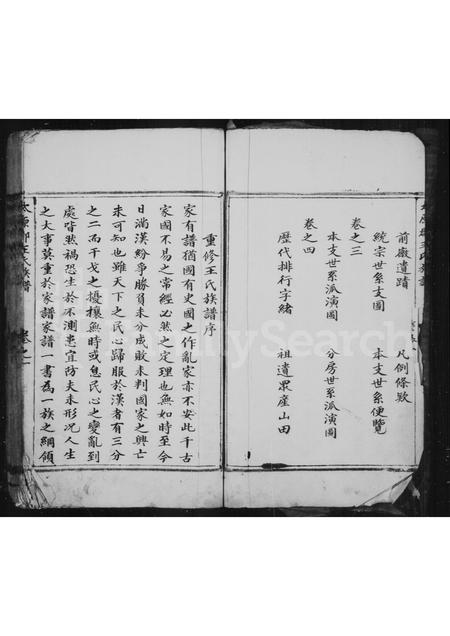 前嚴遺蹟 凡例條欵
統宗世系支圖 本支世系便覽
卷之三
本支世系派演圖 分房世系派演圖
卷之四
歷代排行字緒 祖遺眾產山田
重修王氏族譜序
家有譜猶國有史國之作亂家亦不安此千古
家國不易之常經必然之定理也無如時至今
日滿漢紛爭勝負未分成敗未判國家之興亡
未可知也雖天下之民心歸服於漢者有三分
之二而干戈之擾攘無時或息民心之變亂到
處皆然禍恐生於不測患宜防夫未形况人生
之大事莫重於家譜家譜一書為一族之綱領
太原郡王氏族譜 卷之一
FamilySearch